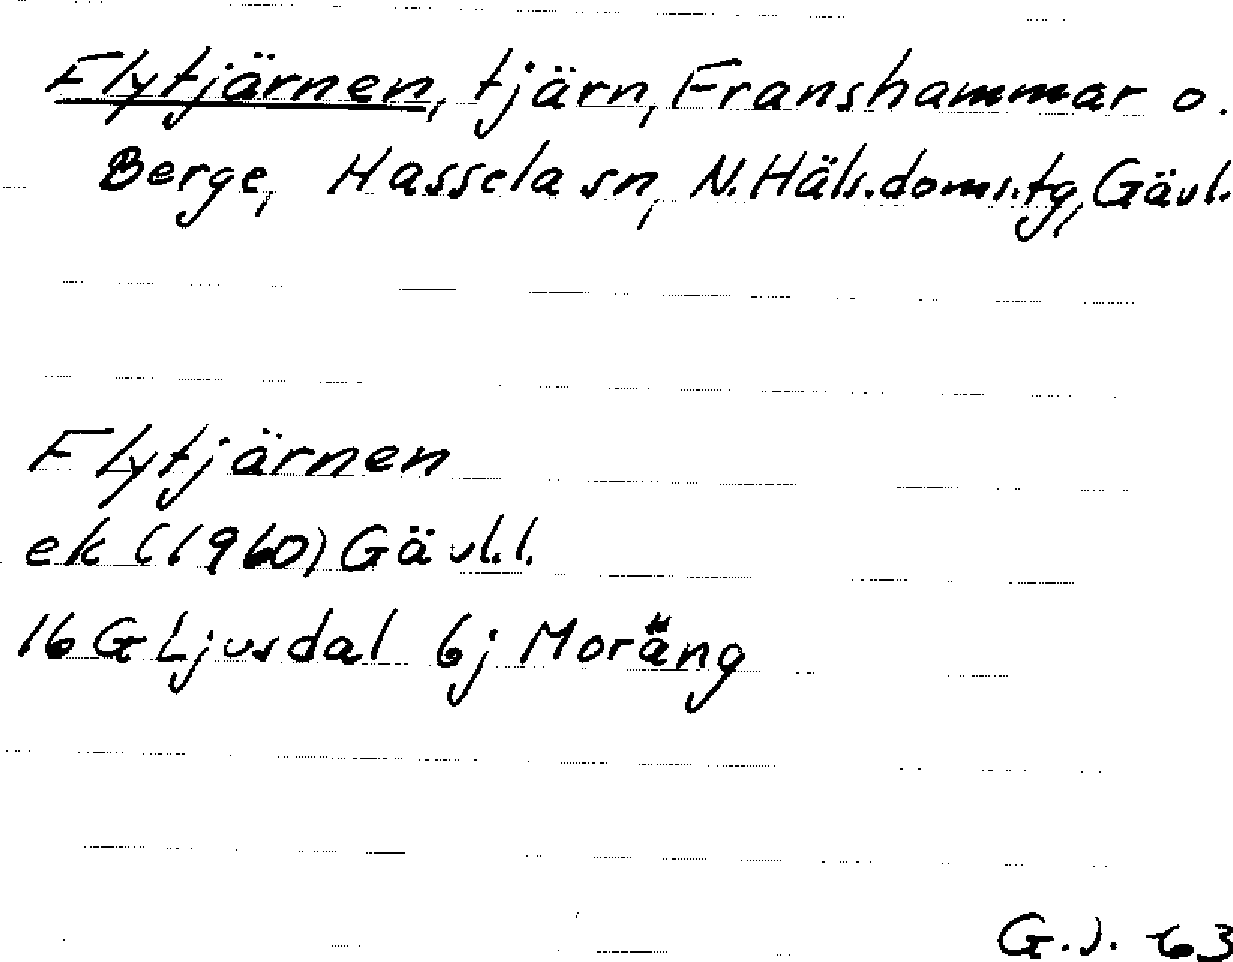 Flytjärnen, tjärn, Franshammar o.
Berge, Hassela sn, N. Häls. doms. tg, Gävl.
Flytjärnen
ek (1960) Gävl. l.
16 G Ljusdal 6j Moräng
G. J. 63